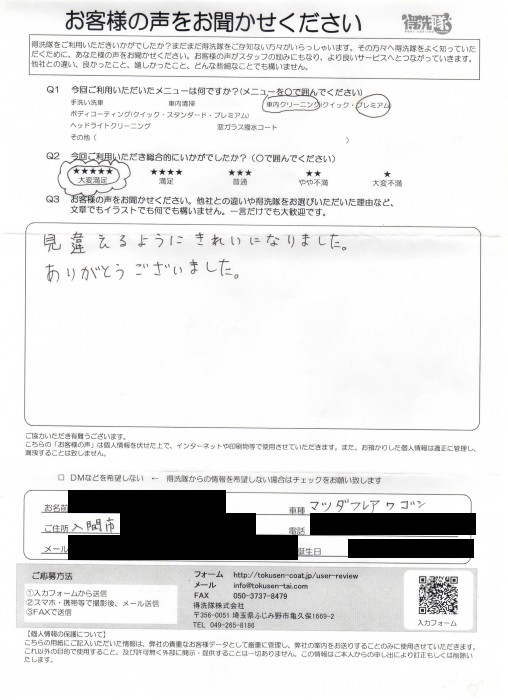 お客様の声をお聞かせください
得洗隊
得洗隊をご利用いただきいかがでしたか？まだまだ得洗隊をご存知ない方々がいらっしゃいます。その方々へ得洗隊をよく知っていた
だくために、あなた様の声をお聞かせください。お客様の声がスタッフの励みにもなり、より良いサービスへとつながっていきます。
他社との違い、良かったこと、嬉しかったこと、どんな些細なことでも構いません。
Q1 今回ご利用いただいたメニューは何ですか？(メニューを〇で囲んでください)
手洗い洗車 車内清掃 車内クリーニング(クイック・プレミアム)
ボディコーティング(クイック・スタンダード・プレミアム)
ヘッドライトクリーニング 窓ガラス撥水コート
その他( )
Q2 今回ご利用いただき総合的にいかがでしたか？(〇で囲んでください)
★★★★★ ★★★★ ★★★ ★★ ★
大変満足 満足 普通 やや不満 大変不満
Q3 お客様の声をお聞かせください。他社との違いや得洗隊をお選びいただいた理由など、
文章でもイラストでも何でも構いません。一言だけでも大歓迎です。
見違えるようにきれいになりました。
ありがとうございました。
ご協力いただき有難うございます。
こちらの「お客様の声」は個人情報を伏せた上で、インターネットや印刷物等で使用させていただきます。また、お預かりした個人情報は適正に管理し、
漏洩することは致しません。
□ DMなどを希望しない ← 得洗隊からの情報を希望しない場合はチェックをお願い致します
お名前 車種 マツダフレアワゴン
ご住所 入間市 電話
メール 誕生日
ご応募方法
①入力フォームから送信
②スマホ・携帯等で撮影後、メール送信
③FAXで送信
フォーム http://tokusen-coat.jp/user-review
メール info@tokusen-tai.com
FAX 050-3737-8479
得洗隊株式会社
〒356-0051 埼玉県ふじみ野市亀久保1669-2
TEL 049-265-8186
入力フォーム
【個人情報の保護について】
こちらの用紙にご記入いただいた情報は、弊社の貴重なお客様データとして厳重に管理し、弊社の案内をお送りすることのみに使用させていただきます。
これ以外の目的で使用すること、及び許可無く外部に開示・提供することは一切ありません。この情報はご本人からの申し出により訂正もしくは削除い
たします。